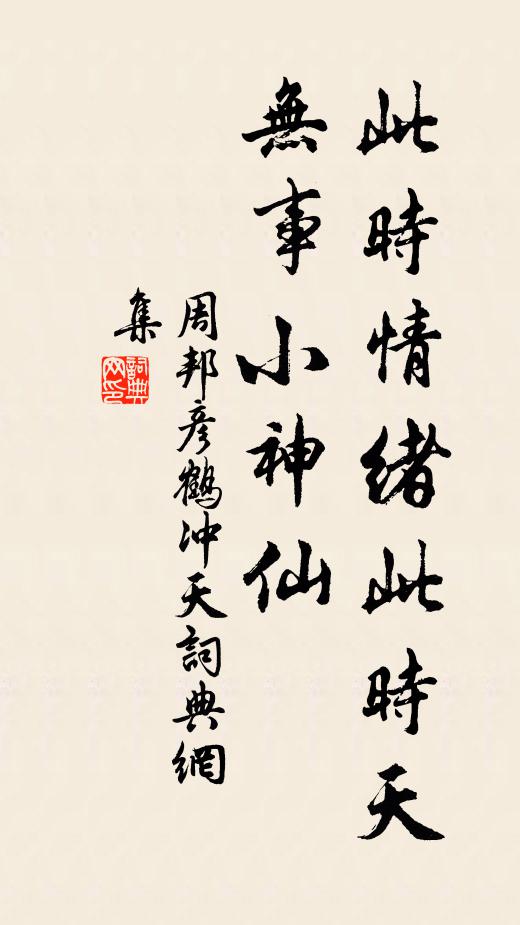 此時情緒此時天
無事小神仙
周邦彦鶴冲天詞典網
集
詞典网印